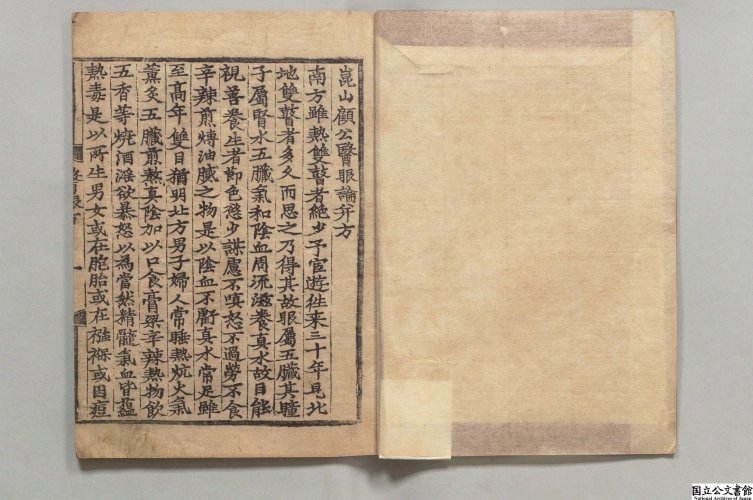 崑山顧公醫眼論并方
南方雖熱雙瞽者絶少予宦遊徃来三十年見北
地雙瞽者多久而思之乃得其故眼屬五臓其瞳
子屬腎水五臓氣和陰血周流滋養真水故目能
視善養生者節色慾少謀慮不嗔怒不過勞不食
辛辣煎煿油膩之物是以陰血不虧真水常足雖
至高年雙目猶明北方男子婦人常睡熱炕火氣
薫炙五臓煎熬真陰加以口食膏粱辛辣熱物飲
五香等燒酒滛欲暴怒以為當然精髓氣血皆蘊
熱毒是以所生男女或在胞胎或在襁褓或因痘
一
国立公文書館
National Archives of Japan